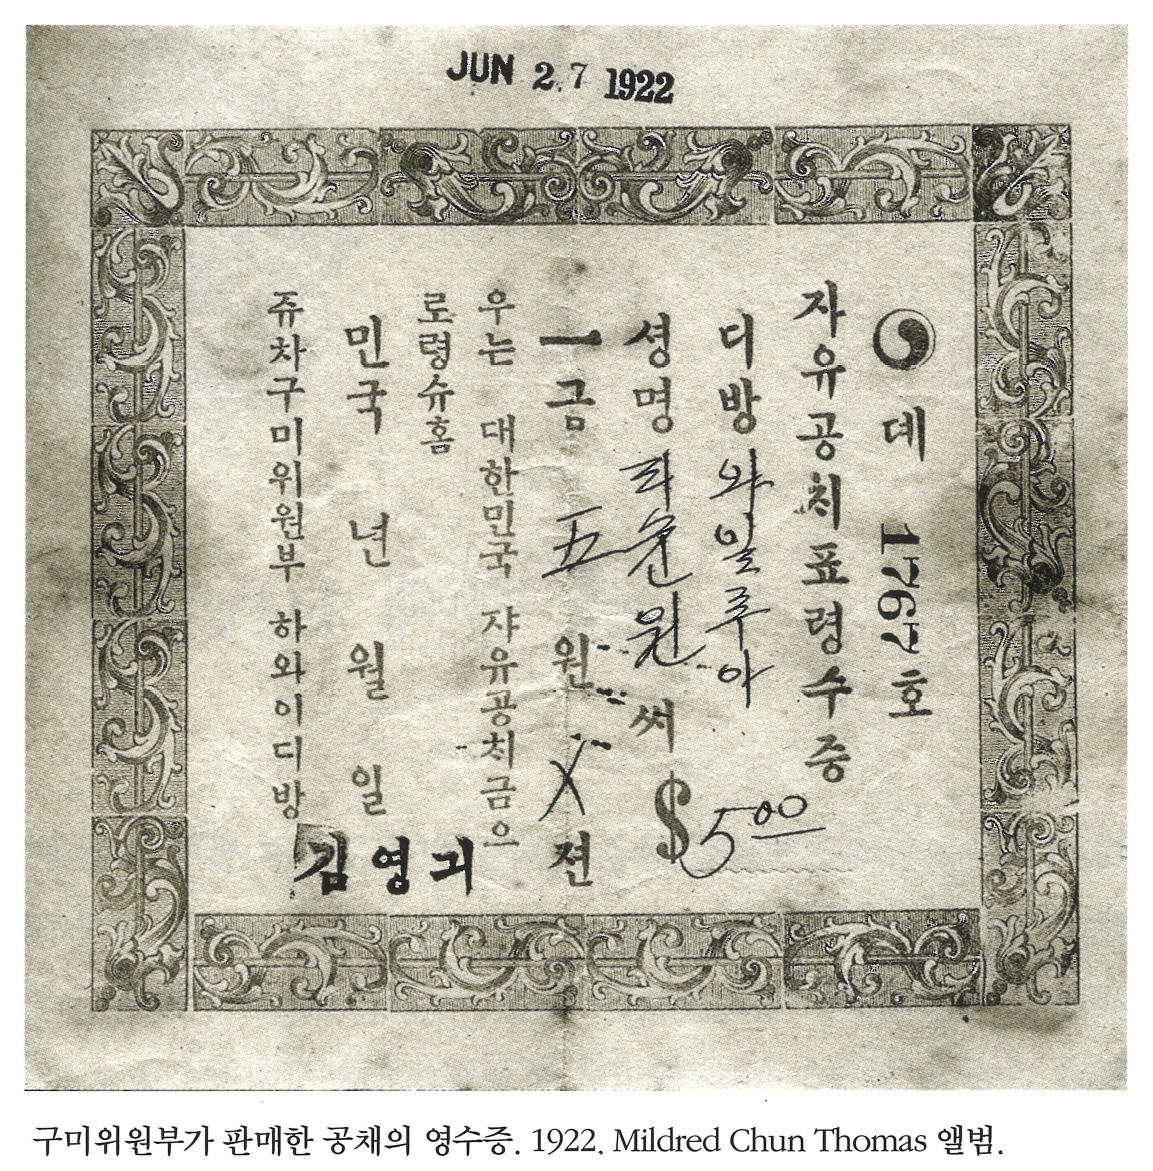 JUN 27 1922
뎨 1767호
자유공치표령수증
디방 와일루아
셩명 리순원 써
$5.00
一금 五 원 X 젼
우는 대한민국 쟈유공치금으
로 령슈홈
민국 년 월 일
쥬차구미위원부 하와이디방
김영긔
구미위원부가 판매한 공채의 영수증. 1922. Mildred Chun Thomas 앨범.